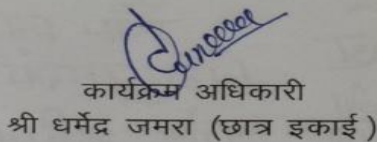 कार्यक्रम अधिकारी
श्री धर्मेंद्र जमरा (छात्र इकाई)